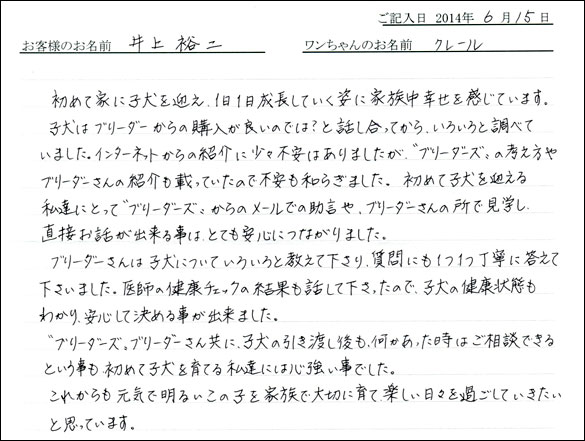 ご記入日 2014年 6月 15日
お客様のお名前 井上 裕二 ワンちゃんのお名前 クレール
初めて家に子犬を迎え、1日1日成長していく姿に家族中幸せを感じています。
子犬はブリーダーからの購入が良いのでは?と話し合ってから、いろいろと調べて
いました。インターネットからの紹介に少々不安はありましたが、"ブリーダーズ"の考え方や
ブリーダーさんの紹介も載っていたので不安も和らぎました。 初めて子犬を迎える
私達にとって"ブリーダーズ"からのメールでの助言や、ブリーダーさんの所で見学し、
直接お話が出来る事は、とても安心につながりました。
ブリーダーさんは子犬についていろいろと教えて下さり、質問にも1つ1つ丁寧に答えて
下さいました。医師の健康チェックの結果も話して下さったので、子犬の健康状態も
わかり、安心して決める事が出来ました。
"ブリーダーズ"、ブリーダーさん共に、子犬の引き渡し後も、何かあった時はご相談できる
という事も、初めて子犬を育てる私達には心強い事でした。
これからも元気で明るいこの子を家族で大切に育て、楽しい日々を過ごしていきたい
と思っています。